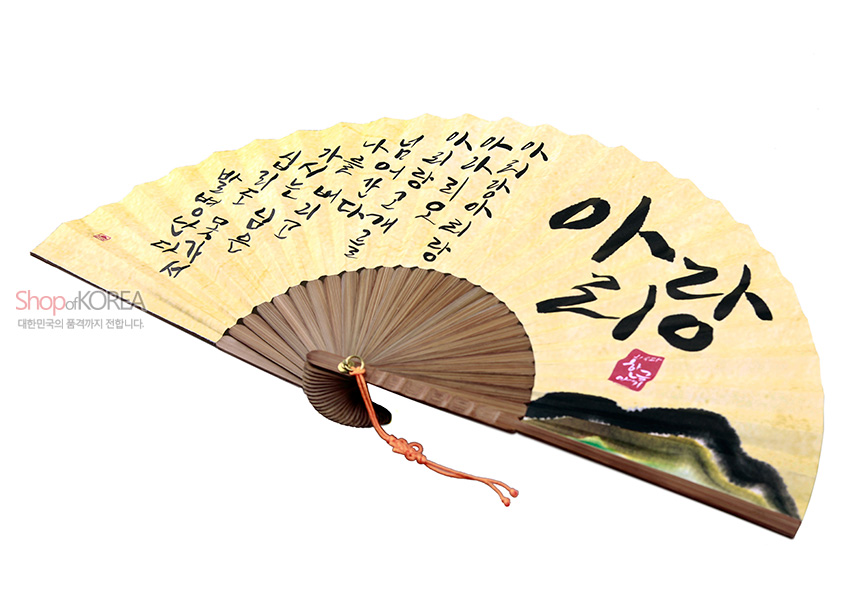 아리랑
아리랑아리랑
아라리오
아리랑고개를
넘어간다
나를버리고
가시는님은
십리도못가서
발병난다
ShopofKOREA
대한민국의 품격까지 전합니다.